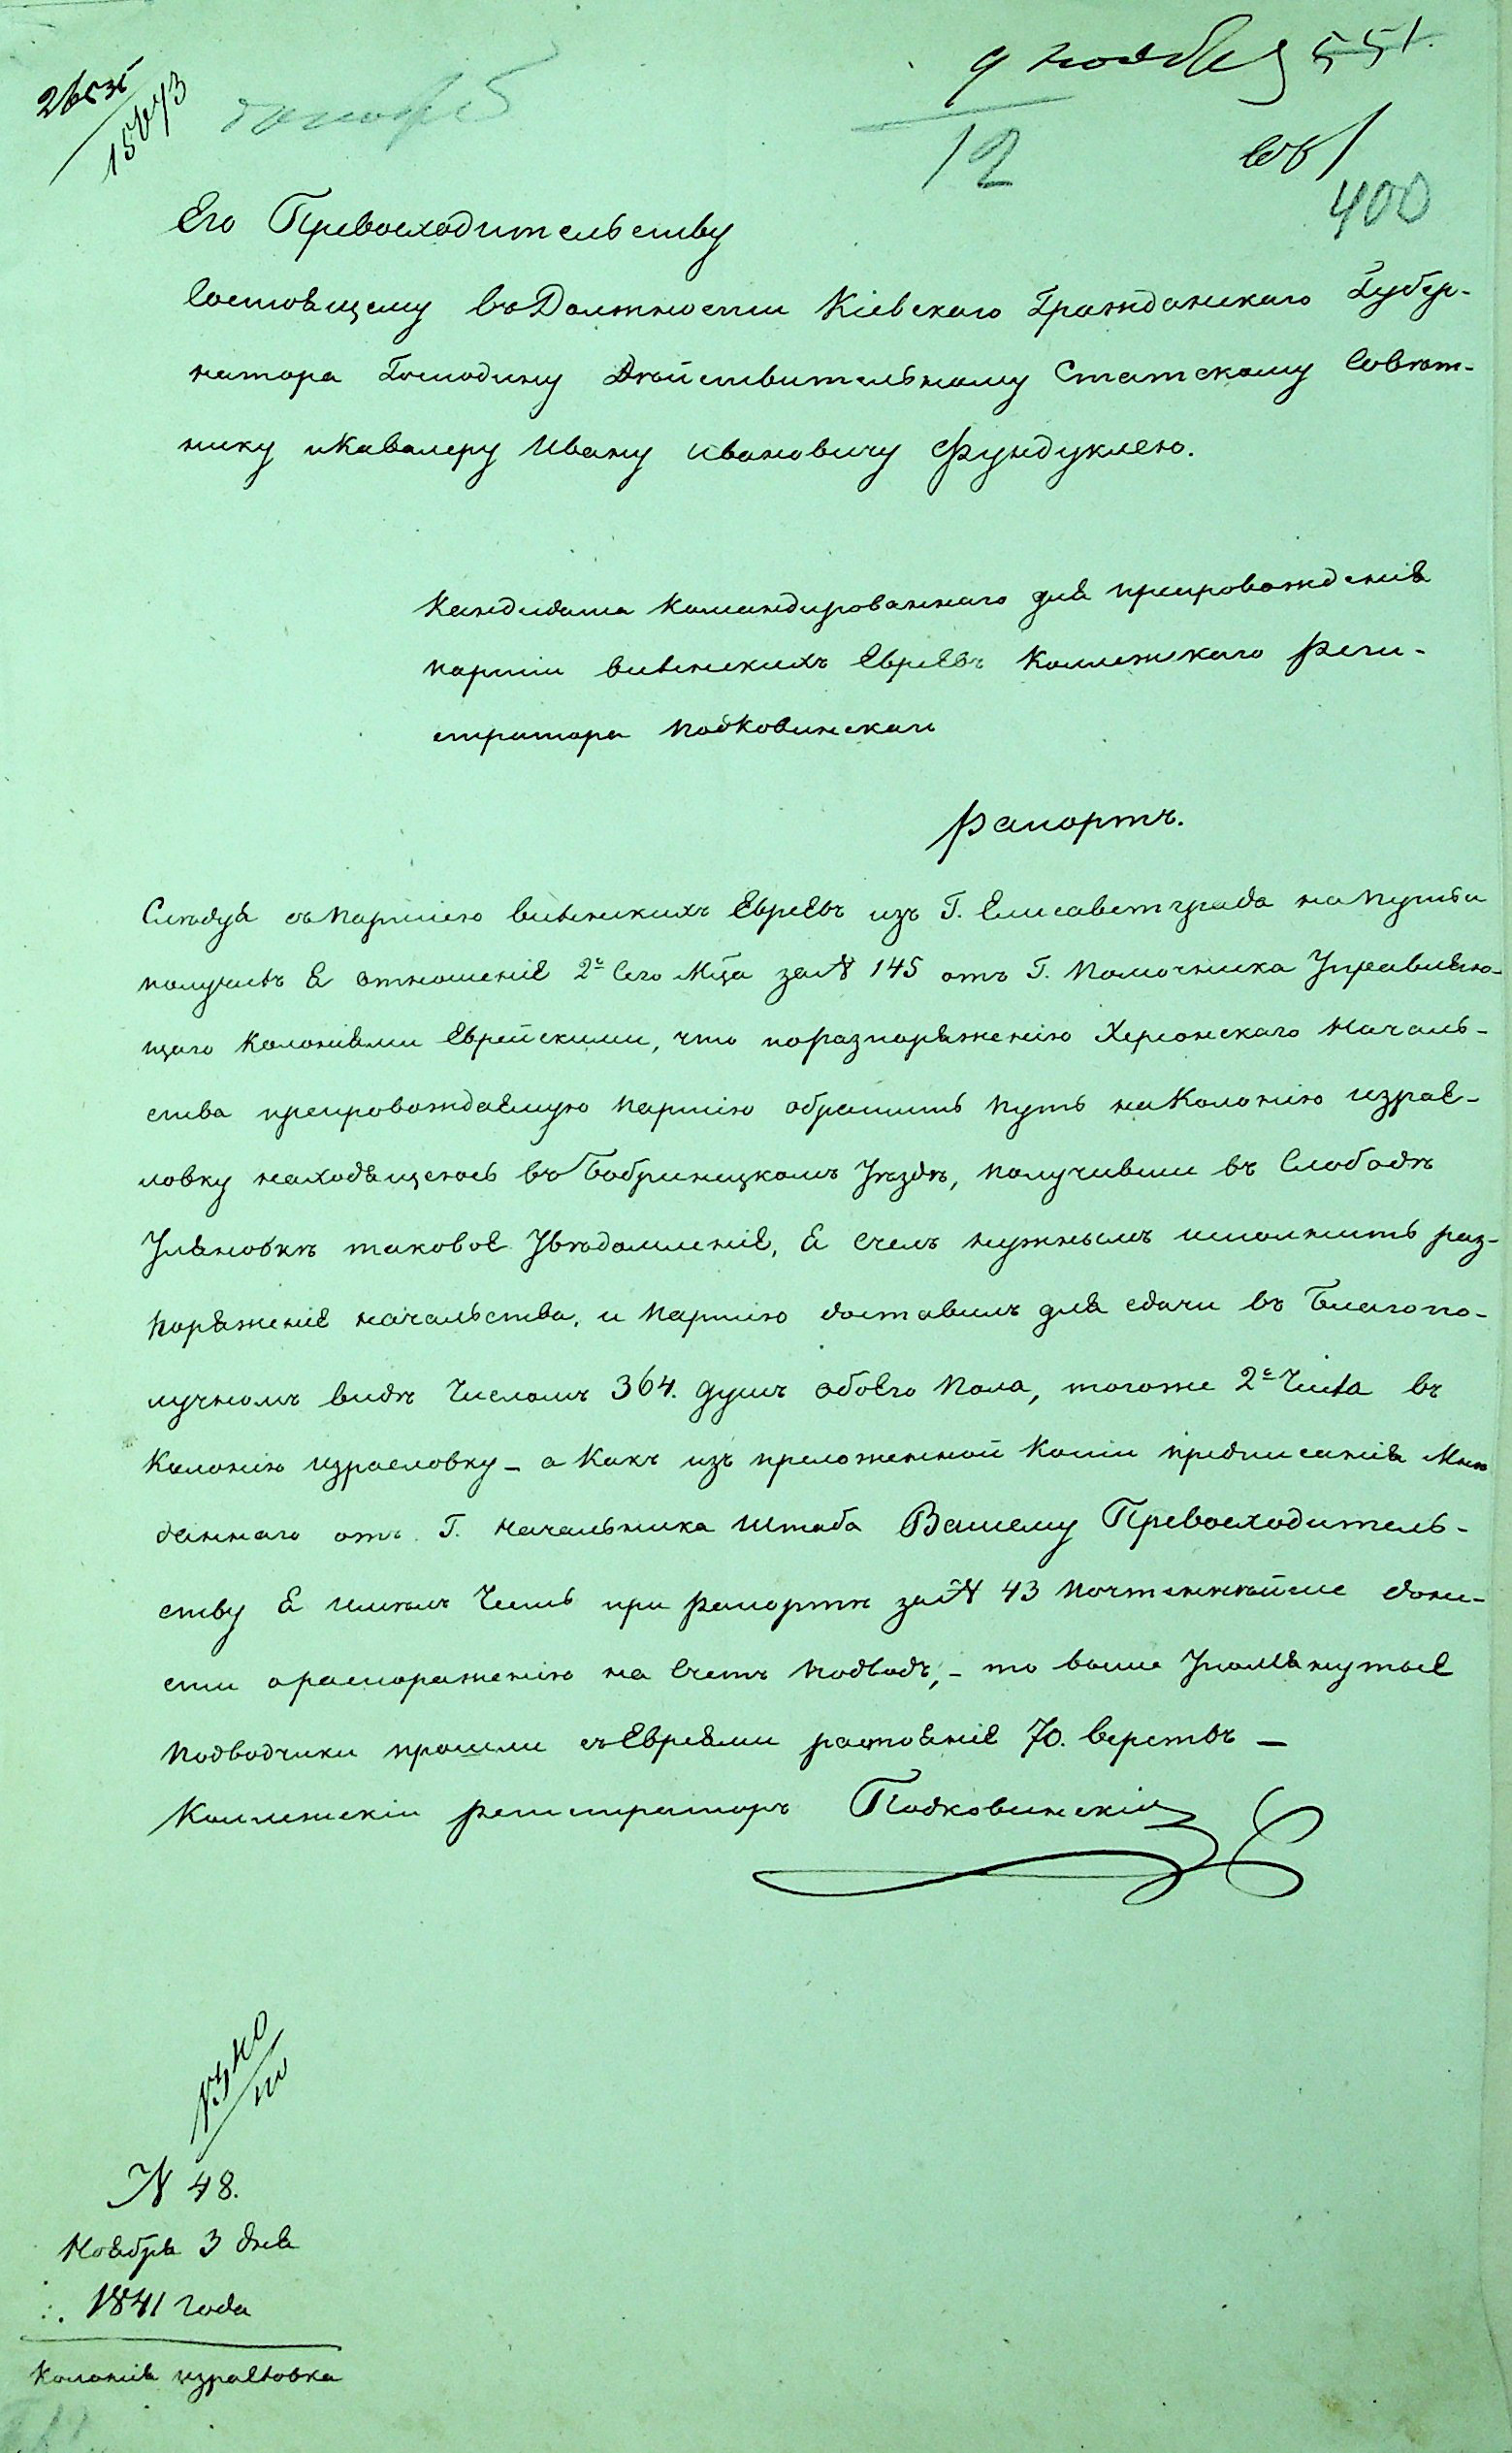 9 ноября 551.
15673
12
400
Его Превосходительству
Состоящему въ Должности Кіевскаго Гражданскаго Губер-
натора Господину Действительному Статскому Совѣт-
нику и Кавалеру Ивану Ивановичу Фундуклею.
Кандидата командированнаго для препровожденія
партіи виленскихъ Евреевъ Коллежскаго Реги-
стратора Подковинскаго
Рапортъ.
Слѣдуя съ партіею виленскихъ Евреевъ изъ Г. Елисаветграда на пути
получилъ я отношеніе 2е Сего Мца за № 145 отъ Г. Помочника Управляю-
щаго Колоніями Еврейскими, что по разпоряженію Херсонскаго Началь-
ства препровождаемую партію обратить путь на Колонію Израе-
ловку находящеюсь въ Бобринецкомъ Уѣздѣ, получивши въ Слободѣ
Уляновкѣ таковое Увѣдомленіе, я счелъ нужнымъ исполнить раз-
поряженіе начальства, и партію доставилъ для сдачи въ Благопо-
лучномъ видѣ Числомъ 364. душъ обоего пола, тогоже 2е Числа въ
Колонію Израеловку – а какъ изъ преложенной копіи предписанія мнѣ
даннаго отъ Г. Начальника Штаба Вашему Превосходитель-
ству я имѣлъ Честь при рапортѣ за № 43 почтеннѣйше доне-
сти о распоряженію на Счетъ подводъ, – то выше Упомянутые
подводчики прошли съ Евреями растояніе 70. верствъ –
Коллежскій регистраторъ Подковинскій
№ 48.
Ноября 3 дня
1841 года
Колонія Израеловка